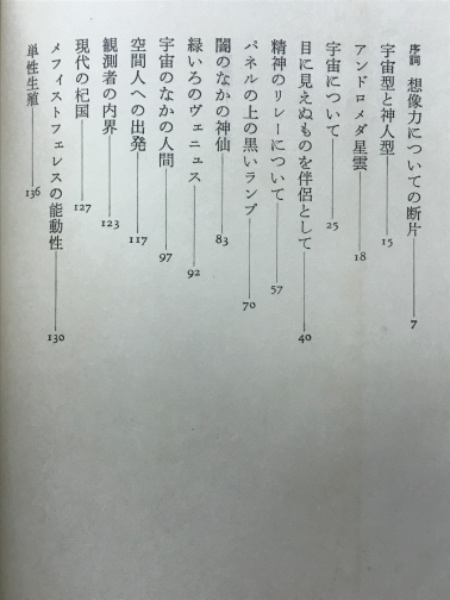 序詞 想像力についての断片 7
宇宙型と神人型 15
アンドロメダ星雲 18
宇宙について 25
目に見えぬものを伴侶として 40
精神のリレーについて 57
パネルの上の黒いランプ 70
闇のなかの神仙 83
緑いろのヴェニュス 92
宇宙のなかの人間 97
空間人への出発 117
観測者の内界 123
現代の杞国 127
メフィストフェレスの能動性 130
単性生殖 136